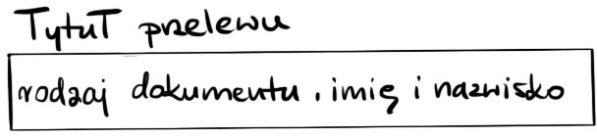 Tytuł przelewu
rodzaj dokumentu, imię i nazwisko